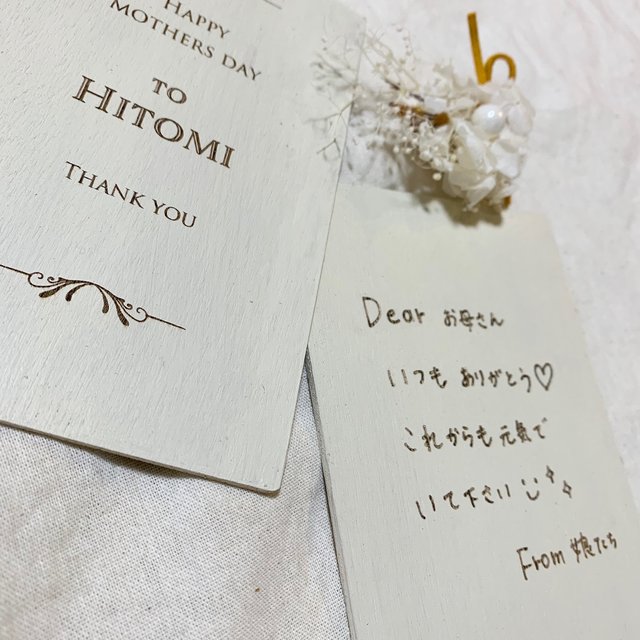 HAPPY
MOTHERS DAY
TO
HITOMI
THANK YOU
Dear お母さん
いつも ありがとう♡
これからも 元気で
いて下さい
From 娘たち